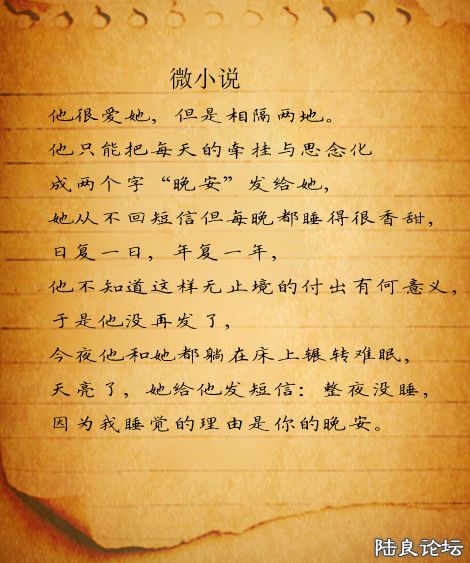 微小说
他很爱她，但是相隔两地。
他只能把每天的牵挂与思念化
成两个字“晚安”发给她，
她从不回短信但每晚都睡得很香甜，
日复一日，年复一年，
他不知道这样无止境的付出有何意义，
于是他没再发了，
今夜他和她都躺在床上辗转难眠，
天亮了，她给他发短信：整夜没睡，
因为我睡觉的理由是你的晚安。
陆良论坛